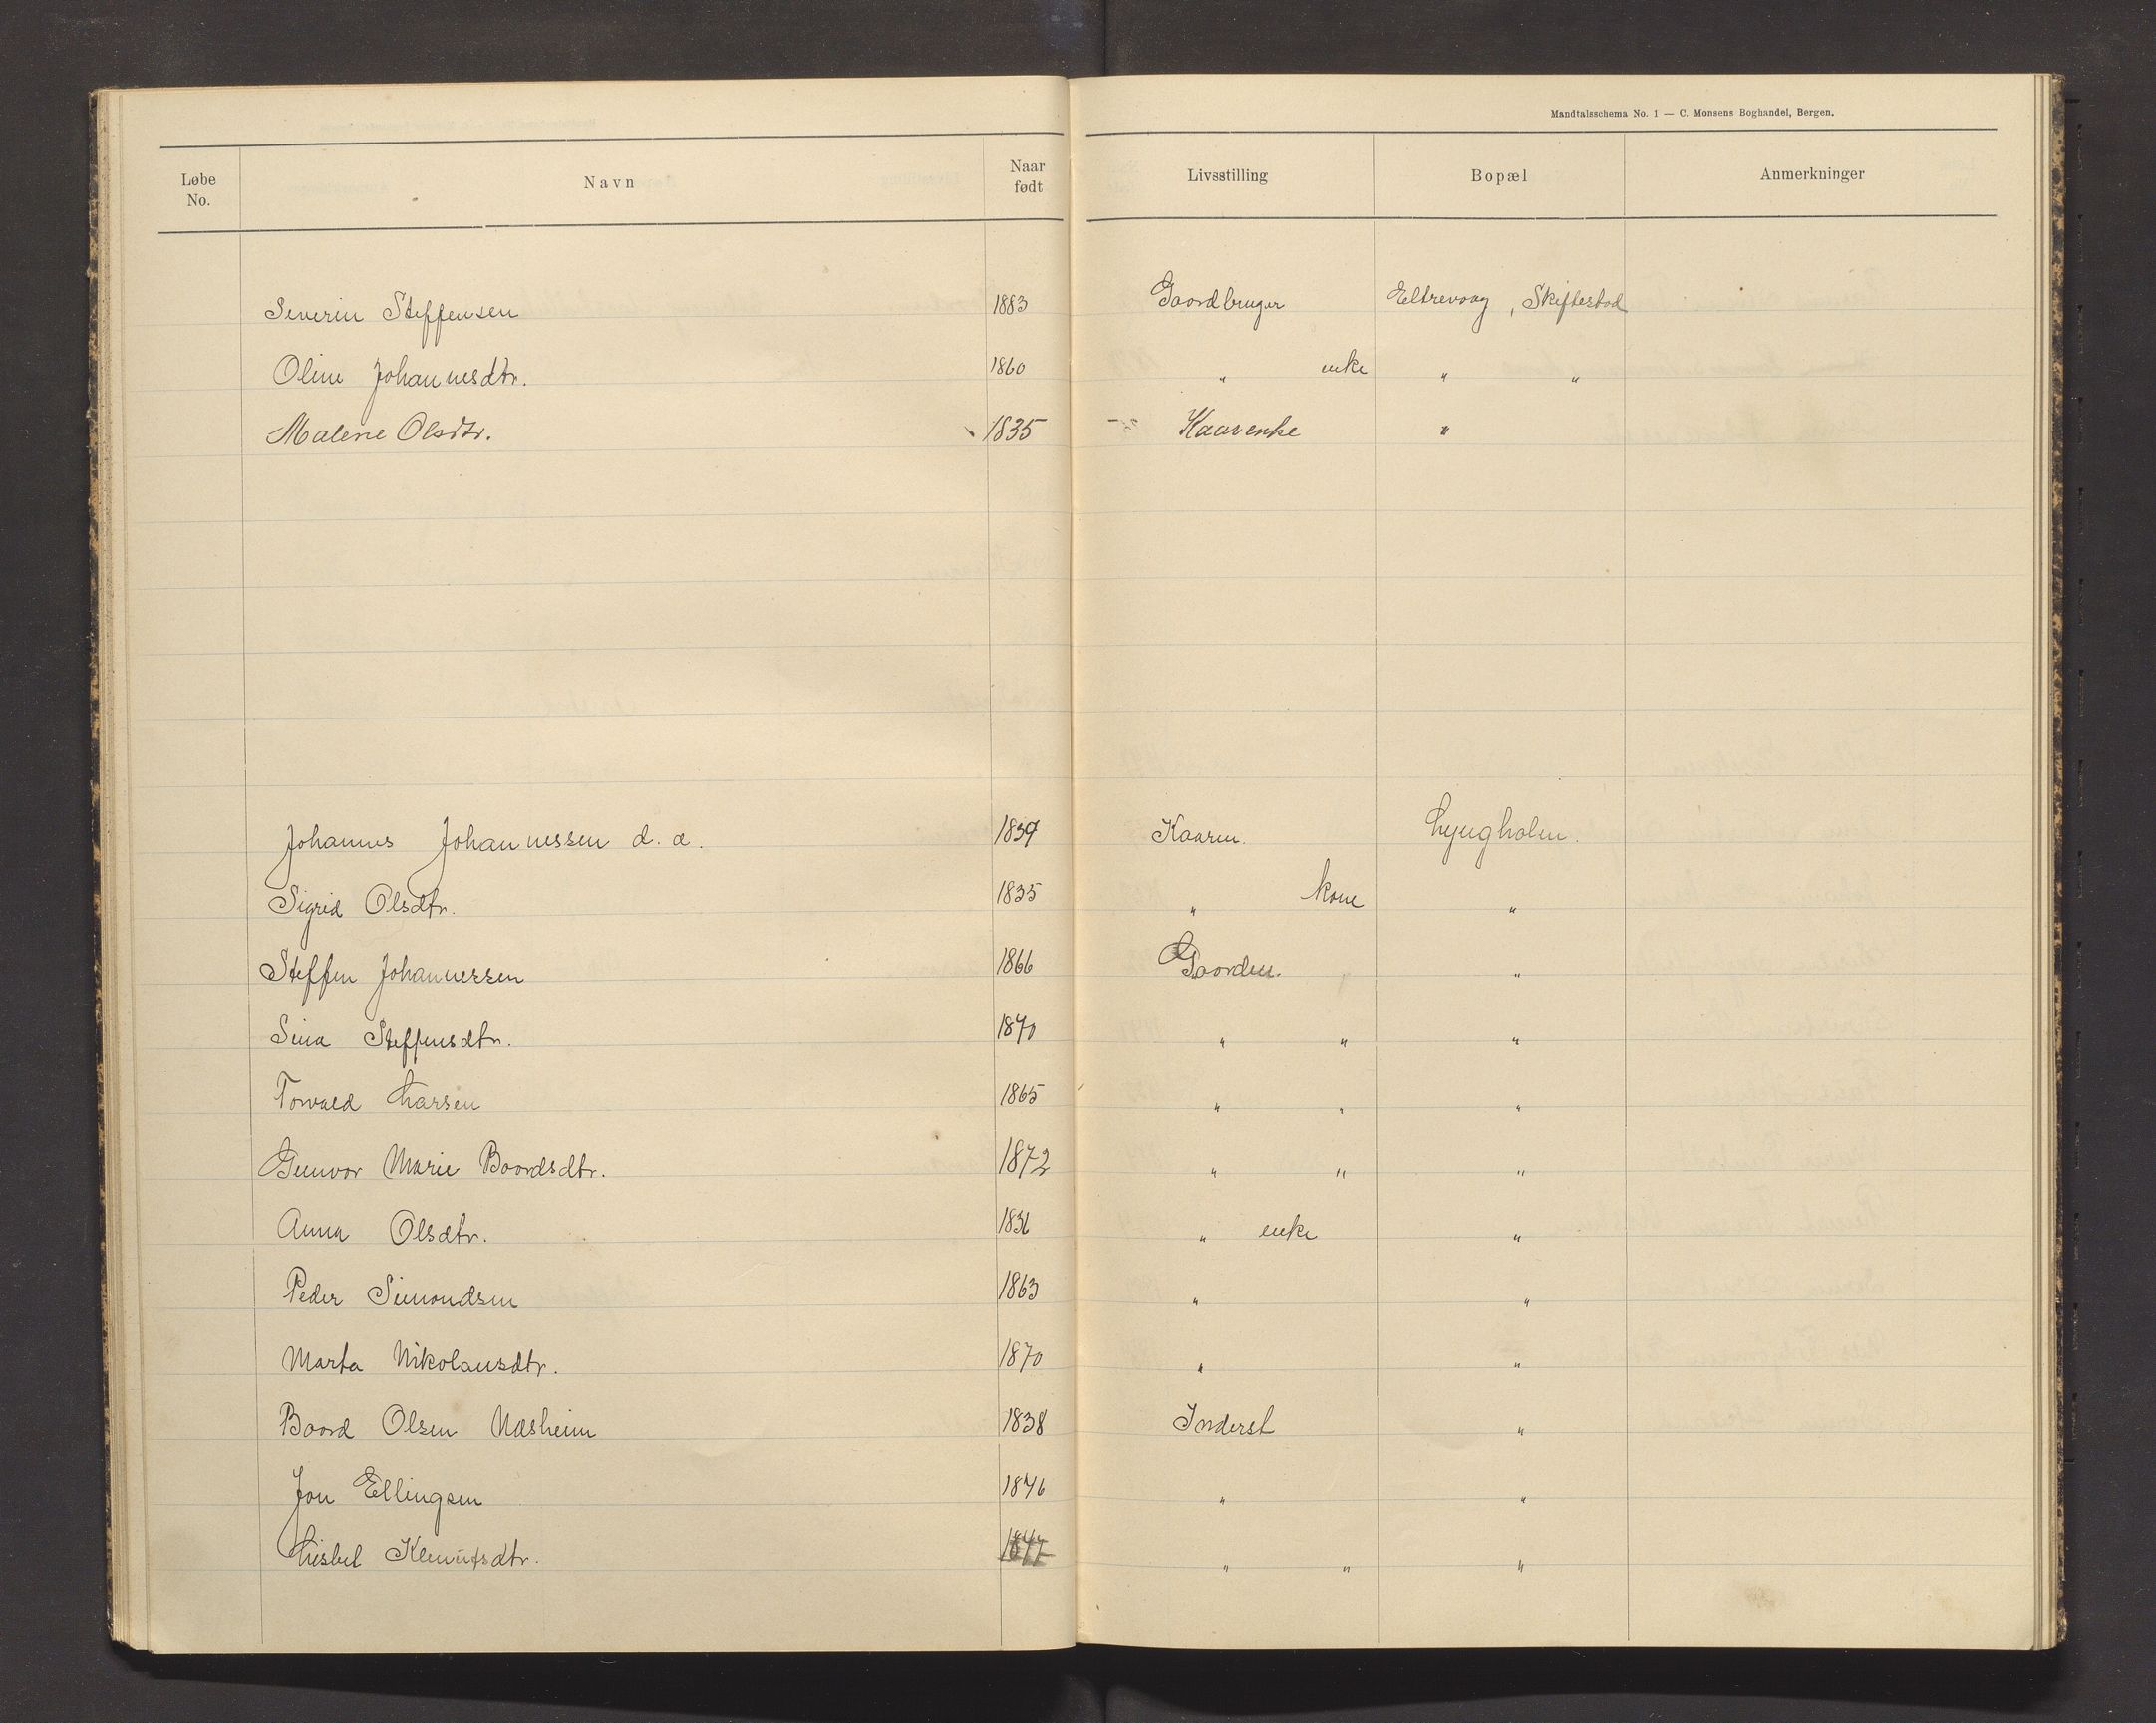 Mandtalsschema No. 1 — C. Monsens Boghandel, Bergen.
Løbe No. Navn Naar født Livsstilling Bopæl Anmerkninger
Severin Steffensen 1883 Gaardbruger Eltrevaag, Skiftestad
Oline Johannesdtr. 1860 " enke " "
Malene Olsdtr. 1835 Kaarenke "
Johannes Johannessen d. æ. 1839 Kaarm. Lyngholm.
Sigrid Olsdtr. 1835 " kone "
Steffen Johannessen 1866 Gaardm. "
Sina Steffensdtr. 1870 " " "
Torvald Larsen 1865 " " "
Gunvor Marie Baardsdtr. 1872 " " "
Anna Olsdtr. 1836 " enke "
Peder Simondsen 1863 " "
Marta Nikolausdtr. 1870 " "
Baard Olsen Næsheim 1838 Inderst "
Jon Ellingsen 1846 " "
Lisbet Klemetsdtr. 1847 " " "